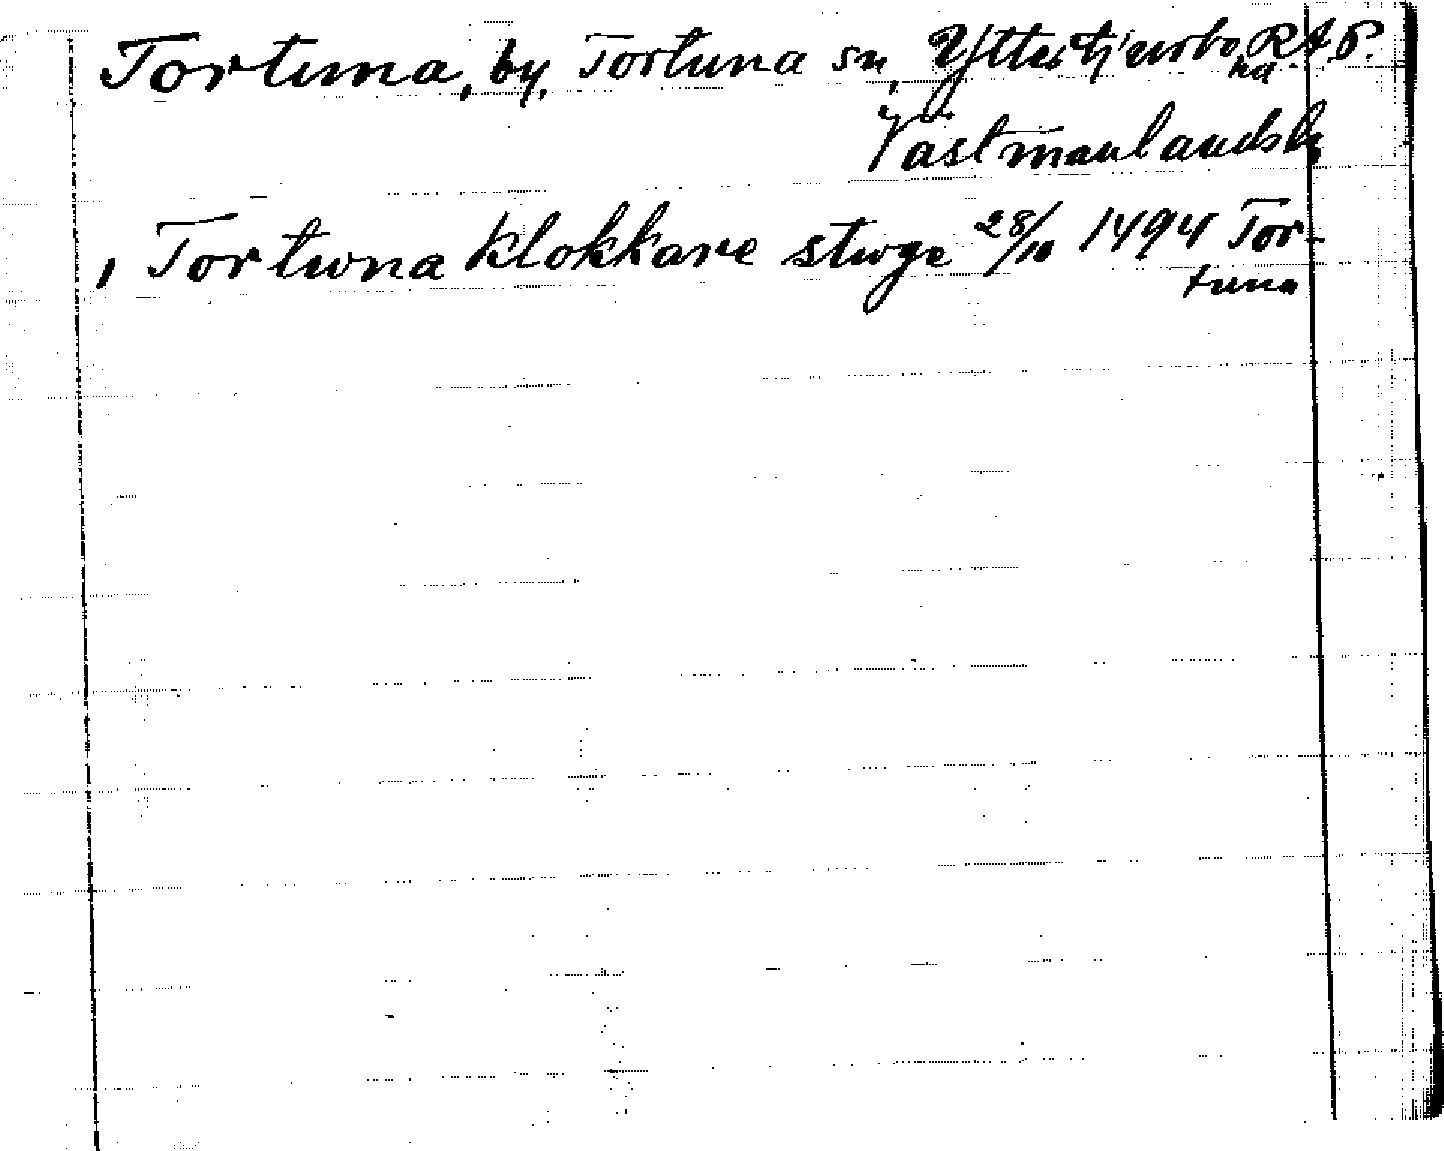 Tortuna, by, Tortuna sn, Yttertjurbo hd R.A.P.
Västmanlands l.
, Tortwna klokkare stwge 28/10 1494 Tor-
tuna